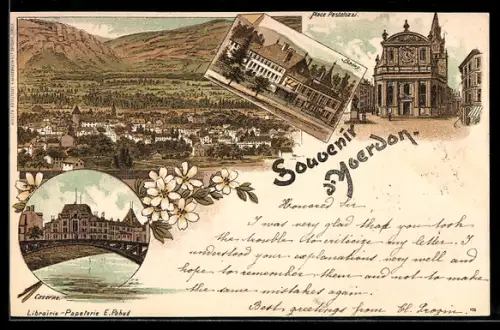 Place Pestalozzi.
Souvenir
d'Yverdon.
Honored Sir
I was very glad that you took
the trouble to my letter. I
understood your explanations very well and
hope to remember them and not to make
the same mistakes again.
Best greetings from
Caserne.
Librairie-Papeterie E. Pahud